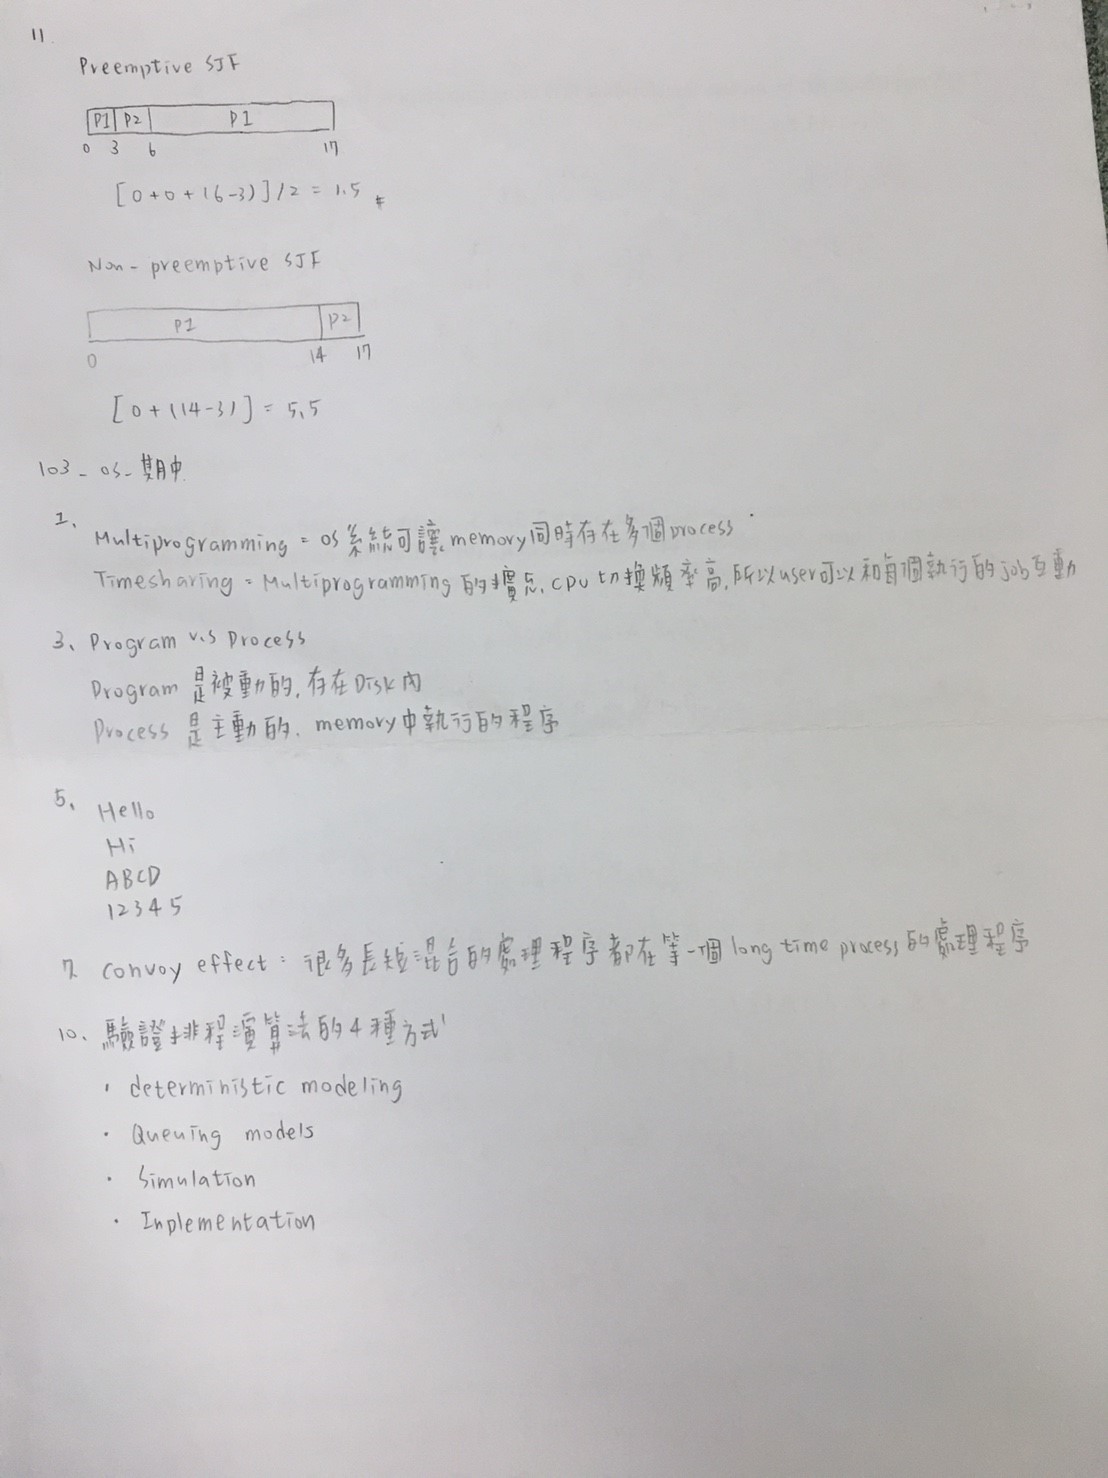 11
Preemptive SJF
P1 P2 P1
0 3 6 17
[0+0+(6-3)]/2 = 1.5 #
Non-preemptive SJF
P1 P2
0 14 17
[0+(14-3)] = 5.5
103-os-期中
1、
Multiprogramming = OS系統可讓memory同時存在多個process
Timesharing = Multiprogramming 的擴充, CPU切換頻率高, 所以user可以和每個執行的job互動
3、Program v.s Process
Program 是被動的, 存在Disk內
Process 是主動的, memory中執行的程序
5、Hello
Hi
ABCD
12345
7. convoy effect : 很多長短混合的處理程序都在等一個long time process的處理程序
10、驗證排程演算法的4種方式
· deterministic modeling
· Queuing models
· Simulation
· Inplementation